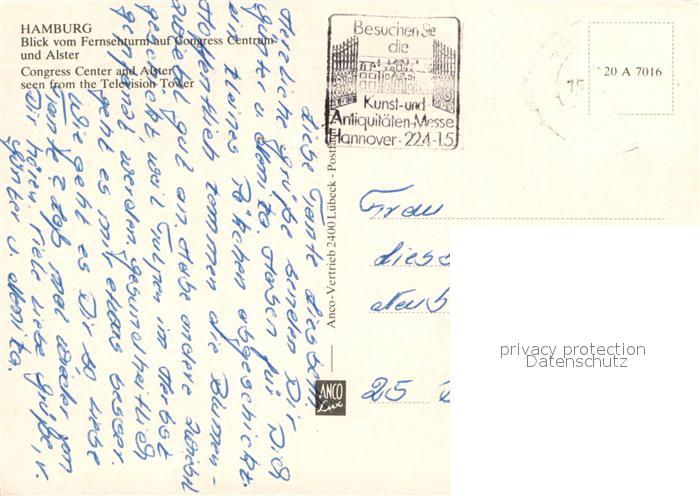 HAMBURG
Blick vom Fernsehturm auf Congress Centrum
und Alster
Congress Center and Alster
seen from the Television Tower
Besuchen Sie
die
Kunst-und
Antiquitäten-Messe
Hannover · 22.4-1.5
20 A 7016
Anco-Vertrieb 2400 Lübeck - Postfach
ANCO
Lux
Liebe Tante Liesbeth.
Herzliche Grüße senden Dir
Günter u. Monita. Haben für Dich
ein kleines Päckchen abgeschickt.
Hoffentlich kommen die Blumen-
zwiebel gut an. Habe andere Zwiebel
geschickt weil Tulpen im Herbst
gepflanzt werden. Gesundheitlich
geht es mir etwas besser.
Wie geht es Dir so liebe
Tante? Laß mal wieder von
Dir hören. Viele liebe Grüße, v.
Günter u. Monita.
Frau
Liese
Neub
25
privacy protection
Datenschutz